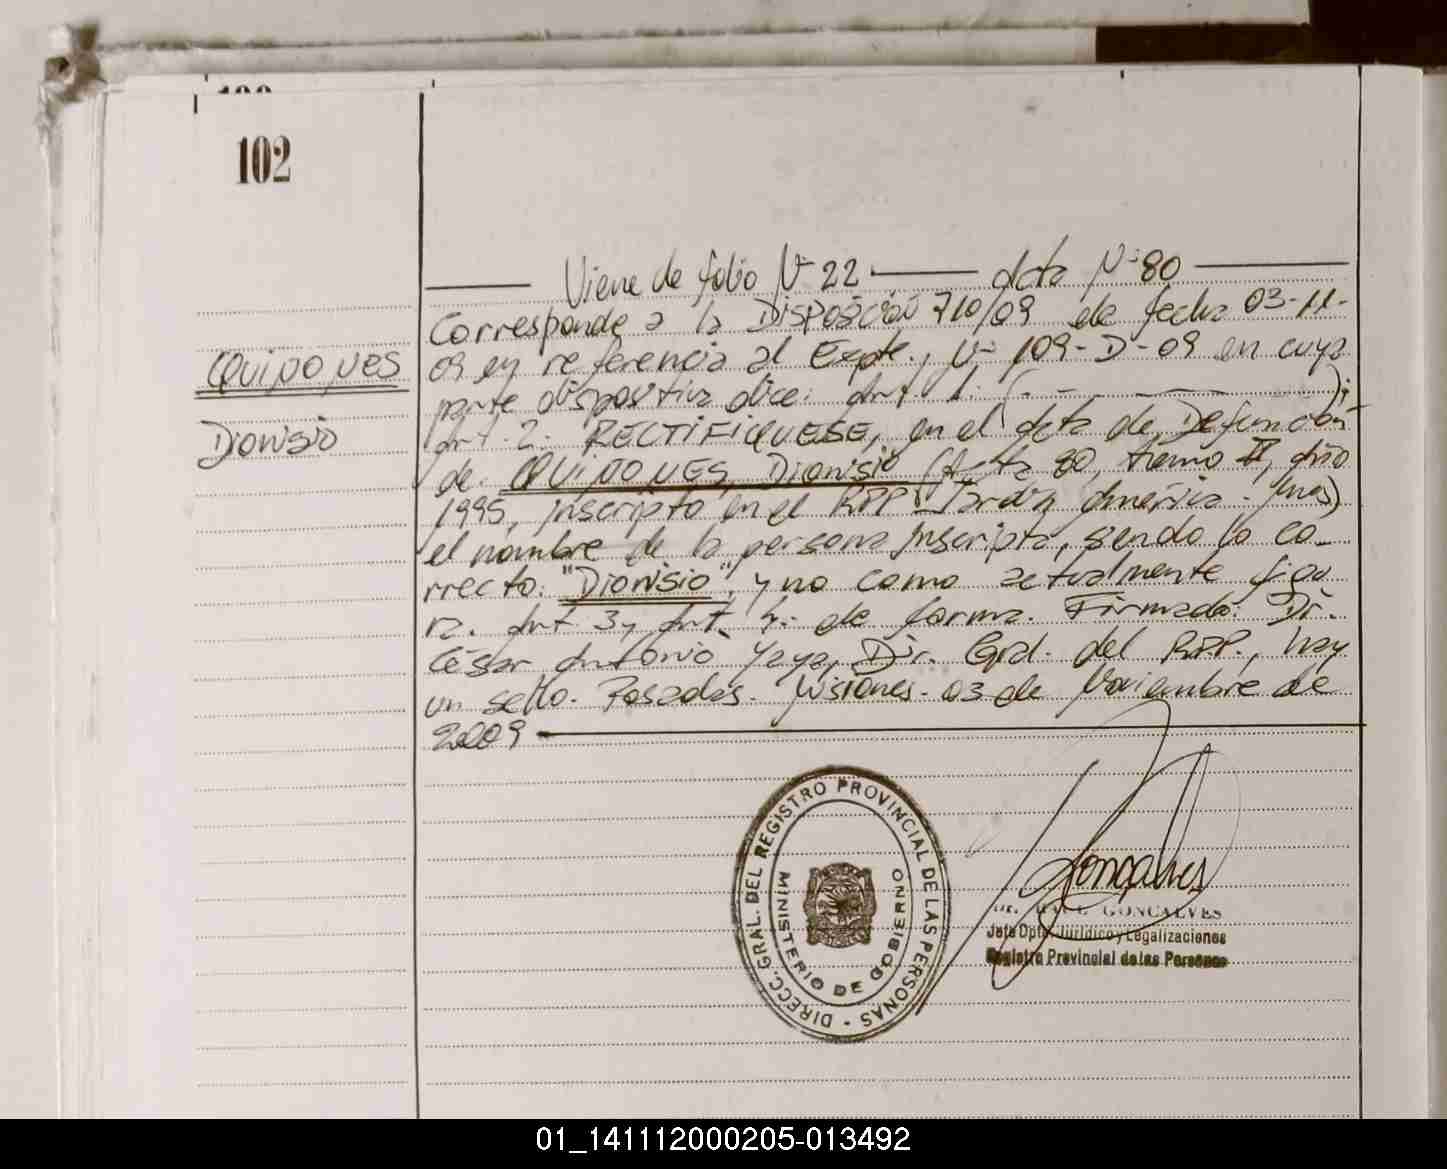 102
Viene de folio Nº 22 — Acta Nº 80 —
Corresponde a la Disposición 710/09 de fecha 03-11-
QUIÑONES
09 en referencia al Expte., Nº 109-D-09 en cuya
parte dispositiva dice: Art. 1: (- - - );
Dionisio
Art. 2: RECTIFIQUESE, en el Acta de Defunción
de QUIÑONES, Dionisio (Acta 80, tomo II, año
1995, inscripto en el RPP Jardín América - Mnes)
el nombre de la persona inscripta, siendo lo co-
rrecto: "Dionisio", y no como actualmente figu
ra. Art 3 y Art. 4: de forma. Firmado: Dr.
César Antonio Yaya, Dir. Gral. del RPP., hay
un sello. Posadas. Misiones - 03 de Noviembre de
2009
DIRECC. GRAL. DEL REGISTRO PROVINCIAL DE LAS PERSONAS -
MINISTERIO DE GOBIERNO
Goncalves
Dr. RAUL GONCALVES
Jefe Dpto. Jurídico y Legalizaciones
Registro Provincial de las Personas
01_141112000205-013492